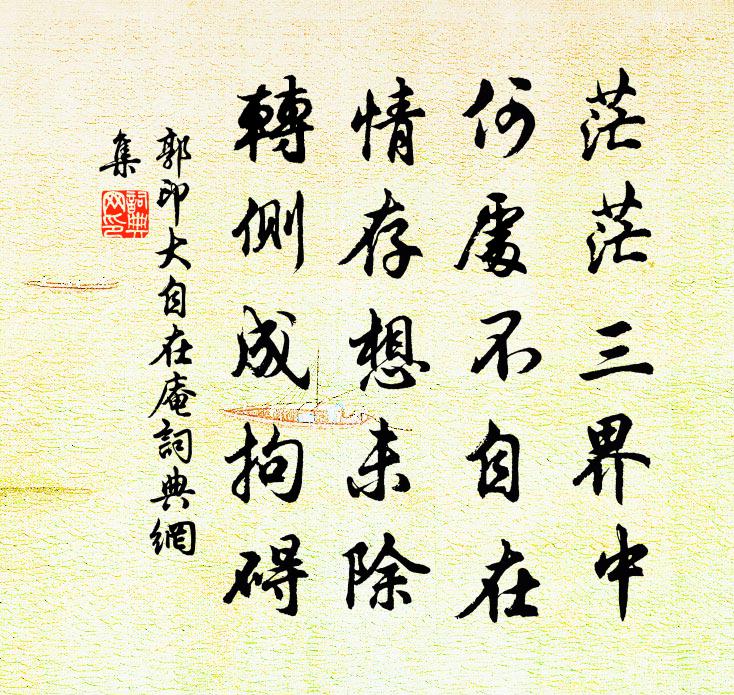 茫茫三界中
何處不自在
情存想未除
轉側成拘碍
郭印大自在庵詞典網
集
詞典
网印